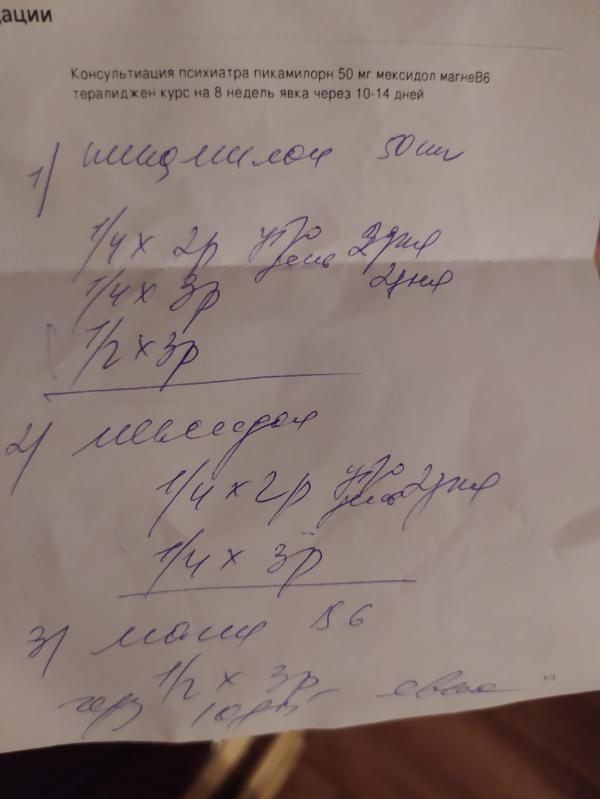 ации
Консультиация психиатра пикамилорн 50 мг мексидол магнеВ6
тералиджен курс на 8 недель явка через 10-14 дней
1) пикамилон 50 мг
1/4 x 2р утро день 2 дня
1/4 x 3р 2 дня
1/2 x 3р
2) мексидол
1/4 x 2р утро день 2 дня
1/4 x 3р
3) магне В6
1/2 x 3р
явка